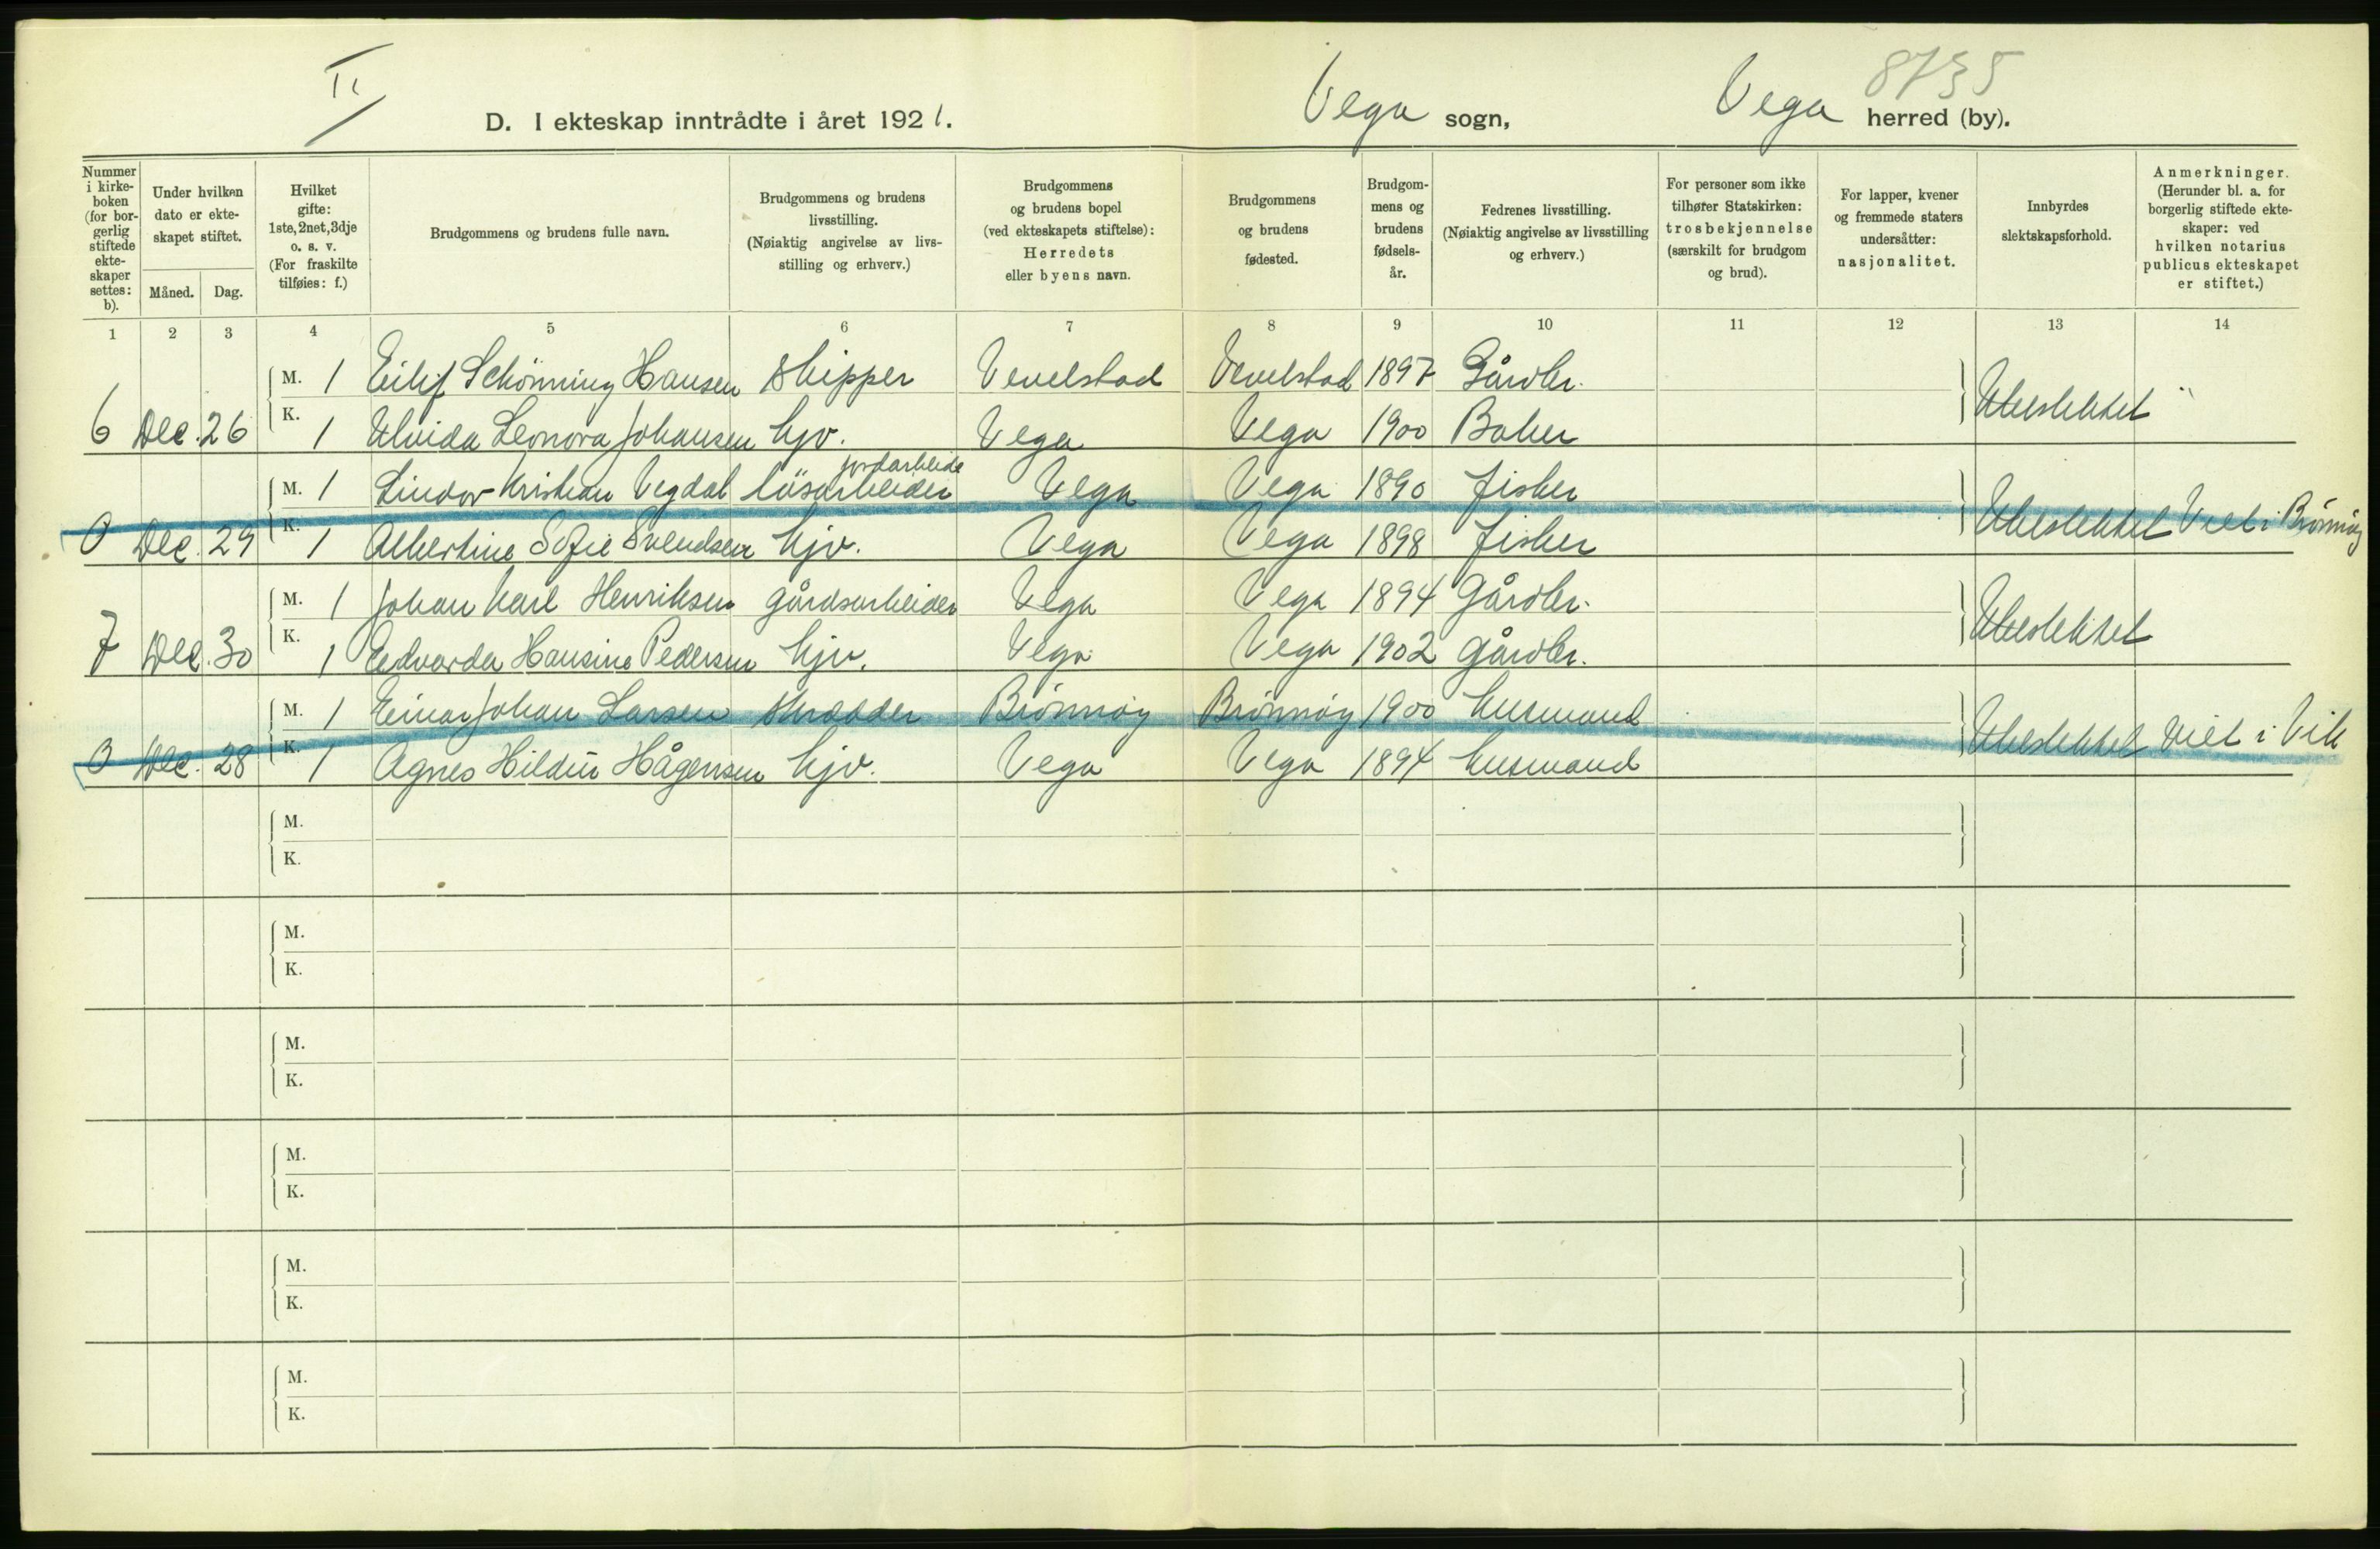 II
8735
D. I ekteskap inntrådte i året 1921. Vega sogn, Vega herred (by).
Nummer i kirke-boken (for bor-gerlig stiftede ekte-skaper settes: b).
Under hvilken dato er ekte-skapet stiftet.
Måned. Dag.
Hvilket gifte: 1ste, 2net, 3dje o. s. v. (For fraskilte tilføies: f.)
Brudgommens og brudens fulle navn.
Brudgommens og brudens livsstilling. (Nøiaktig angivelse av livs-stilling og erhverv.)
Brudgommens og brudens bopel (ved ekteskapets stiftelse): Herredets eller byens navn.
Brudgommens og brudens fødested.
Brudgom-mens og brudens fødsels-år.
Fedrenes livsstilling. (Nøiaktig angivelse av livsstilling og erhverv.)
For personer som ikke tilhører Statskirken: trosbekjennelse (særskilt for brudgom og brud).
For lapper, kvener og fremmede staters undersåtter: nasjonalitet.
Innbyrdes slektskapsforhold.
Anmerkninger. (Herunder bl. a. for borgerlig stiftede ekte-skaper: ved hvilken notarius publicus ekteskapet er stiftet.)
1 2 3 4 5 6 7 8 9 10 11 12 13 14
M. 1 Eilif Schönning Hansen skipper Vevelstad Vevelstad 1897 Gårdbr.
6 Dec. 26 K. 1 Alvida Leonora Johansen hjv. Vega Vega 1900 Baker Ubeslektet "
jordarbeide
M. 1 Lindor Kristian Vegdal løsarbeider Vega Vega 1890 fisker
0 Dec. 29 K. 1 Albertine Sofie Svendsen hjv. Vega Vega 1898 fisker Ubeslektet Viet i Brönnöy
M. 1 Johan Karl Henriksen gårdsarbeider Vega Vega 1894 Gårdbr.
7 Dec. 30 K. 1 Edvarda Hansine Pedersen hjv. Vega Vega 1902 gårdbr. Ubeslektet
M. 1 Einar Johan Larsen skrædder Brönnöy Brönnöy 1900 husmand
0 Dec. 28 K. 1 Agnes Hildur Hågensen hjv. Vega Vega 1894 husmand Ubeslektet Viet i Vik
M.
K.
M.
K.
M.
K.
M.
K.
M.
K.
M.
K.